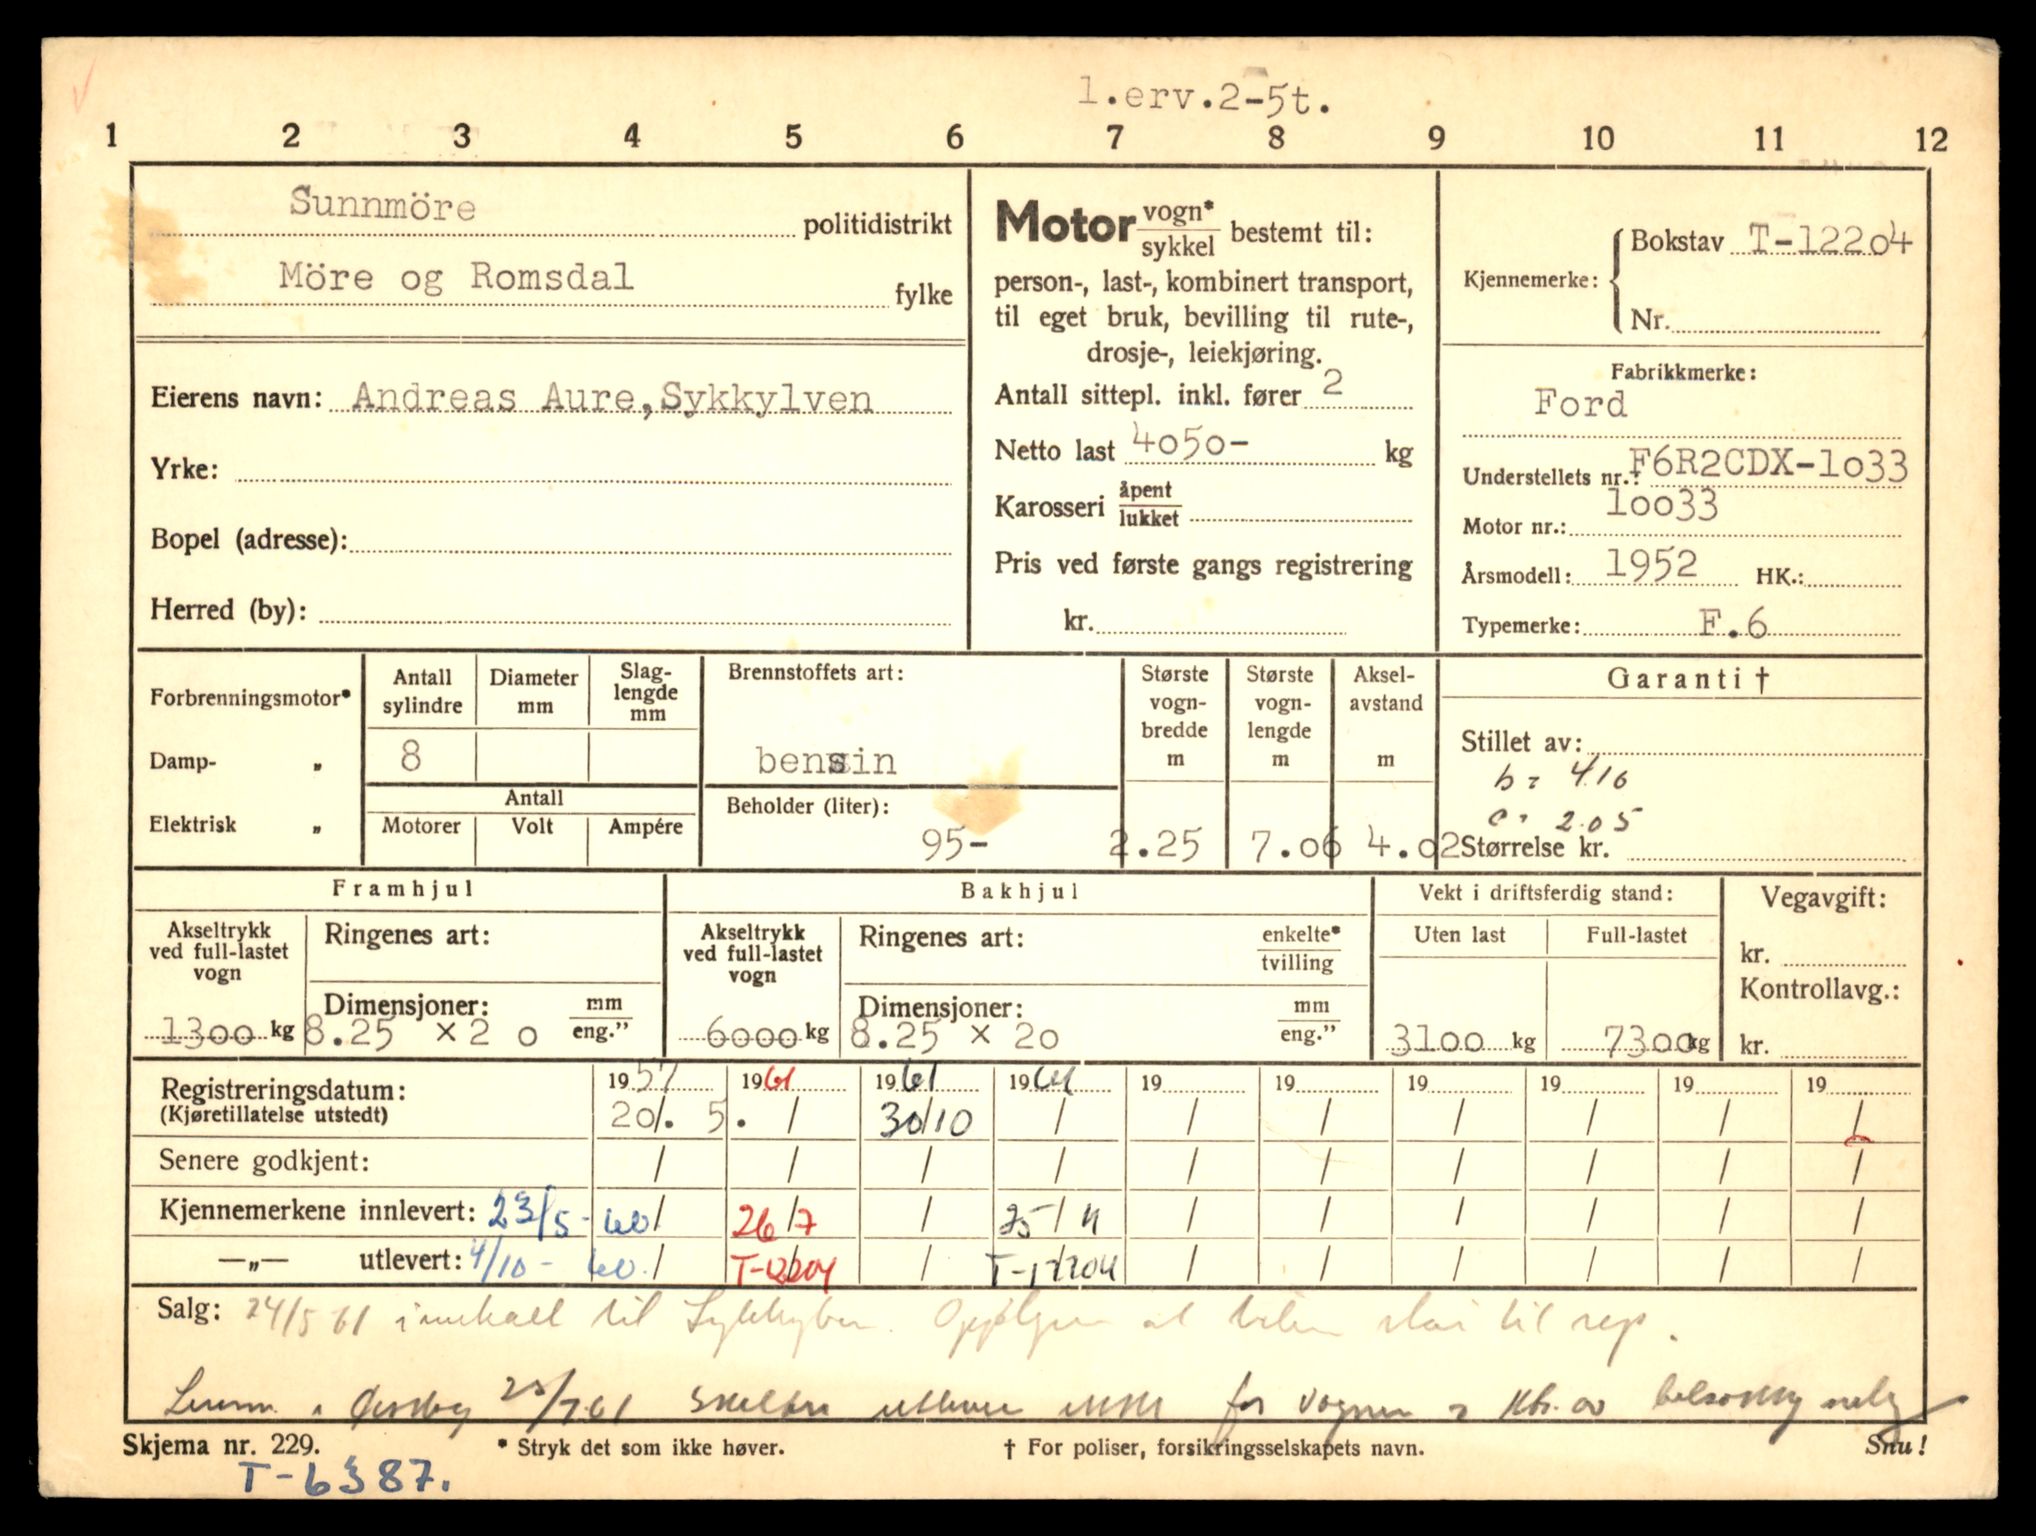 1.erv.2-5t.
1 2 3 4 5 6 7 8 9 10 11 12
Sunnmöre politidistrikt
Möre og Romsdal fylke
Eierens navn: Andreas Aure, Sykkylven
Yrke:
Bopel (adresse):
Herred (by):
Motor vogn* / sykkel bestemt til:
person-, last-, kombinert transport,
til eget bruk, bevilling til rute-,
drosje-, leiekjøring.
Antall sittepl. inkl. fører 2
Netto last 4050- kg
Karosseri åpent / lukket
Pris ved første gangs registrering
kr.
Kjennemerke: Bokstav T-12204
Nr.
Fabrikkmerke:
Ford
Understellets nr.: F6R2CDX-1033
Motor nr.: 10033
Årsmodell: 1952 HK.:
Typemerke: F.6
Forbrenningsmotor*
Damp- „
Elektrisk „
Antall sylindre Diameter mm Slag-lengde mm
8
Antall
Motorer Volt Ampére
Brennstoffets art:
bensin
Beholder (liter):
95-
Største vogn-bredde m
2.25
Største vogn-lengde m
7.06
Aksel-avstand m
4.02
Garanti †
Stillet av:
b = 4.10
c = 2.05
Størrelse kr.
Framhjul
Akseltrykk ved full-lastet vogn
1300 kg
Ringenes art:
Dimensjoner: mm / eng.”
8.25 x 20
Bakhjul
Akseltrykk ved full-lastet vogn
6000 kg
Ringenes art: enkelte* / tvilling
Dimensjoner: mm / eng.”
8.25 x 20
Vekt i driftsferdig stand:
Uten last Full-lastet
3100 kg 7300 kg
Vegavgift:
kr.
Kontrollavg.:
kr.
Registreringsdatum: 1957 1961 1961 1961 19 19 19 19 19 19
(Kjøretillatelse utstedt) 20/. 5. / 30/10 / / / / / / /
Senere godkjent: / / / / / / / / / /
Kjennemerkene innlevert: 23/5 - 60 / 26/7 / 25/11 / / / / / /
—„— utlevert: 4/10 - 60. / T-12204 / T-12204 / / / / / /
Salg: 24/5 61 til Sykkylven. at bilen står til rep.
i Ørsta 25/7.61 for vognen
Skjema nr. 229. * Stryk det som ikke høver. † For poliser, forsikringsselskapets navn. Snu!
T-6387.